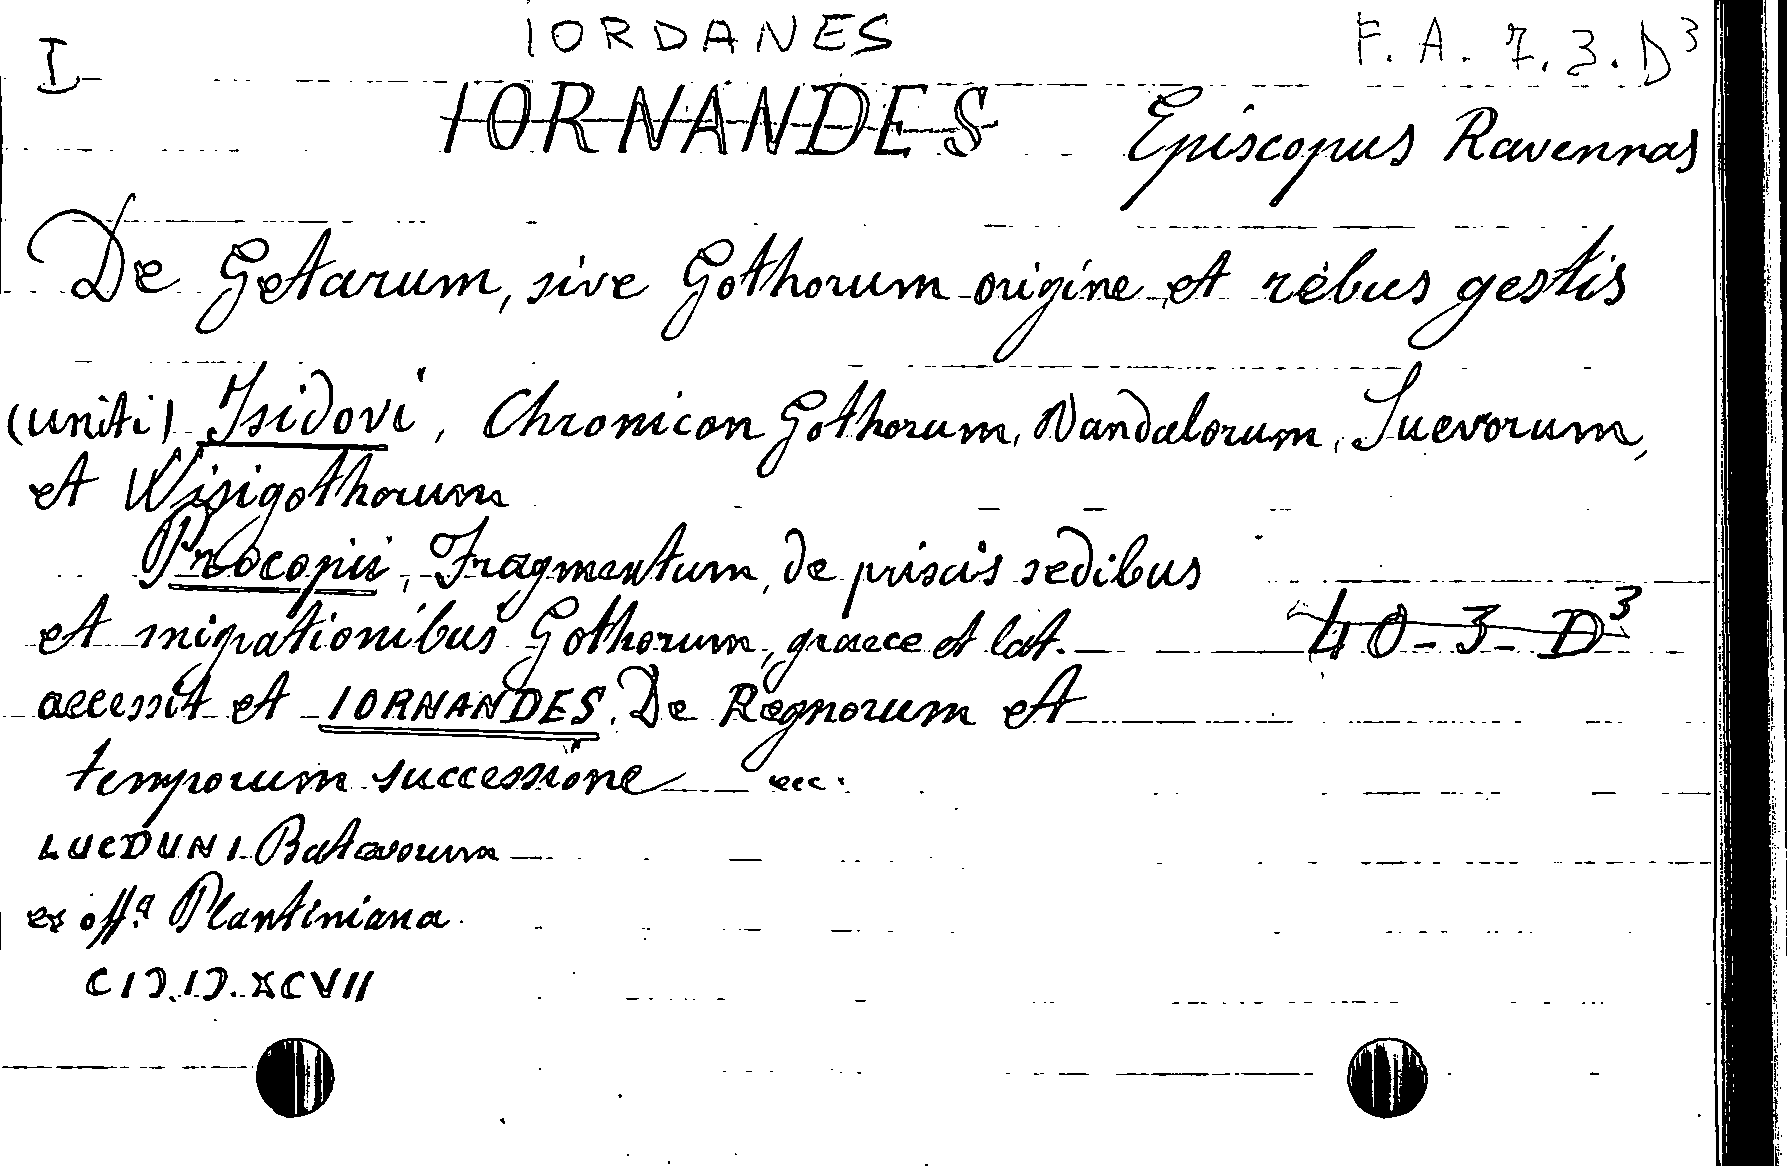 I
IORDANES
F. A. 7. 3. D³
IORNANDES Episcopus Ravennas
De Getarum, sive Gothorum origine et rebus gestis
(uniti) Isidori, Chronicon Gothorum, Vandalorum, Suevorum,
et Wisigothorum
Procopii, Fragmentum, de priscis sedibus
et migrationibus Gothorum, graece et lat.
40-3-D³
accessit et IORNANDES. De Regnorum et
temporum successione ecc.
LUGDUNI Batavorum
ex off.ª Plantiniana
CIƆ.IƆ.XCVII